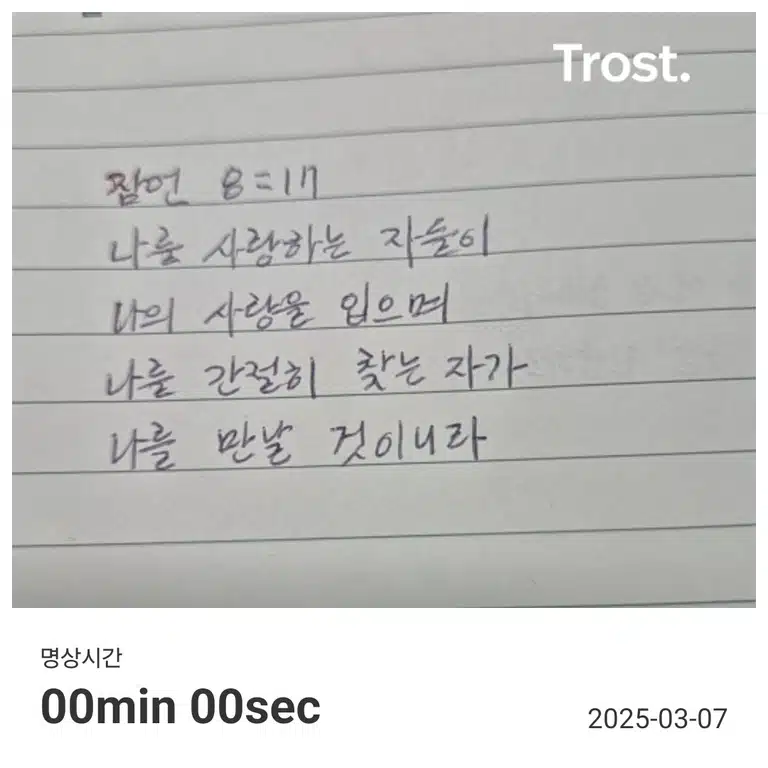 Trost.
잠언 8=17
나를 사랑하는 자들이
나의 사랑을 입으며
나를 간절히 찾는 자가
나를 만날 것이니라
명상시간
00min 00sec
2025-03-07